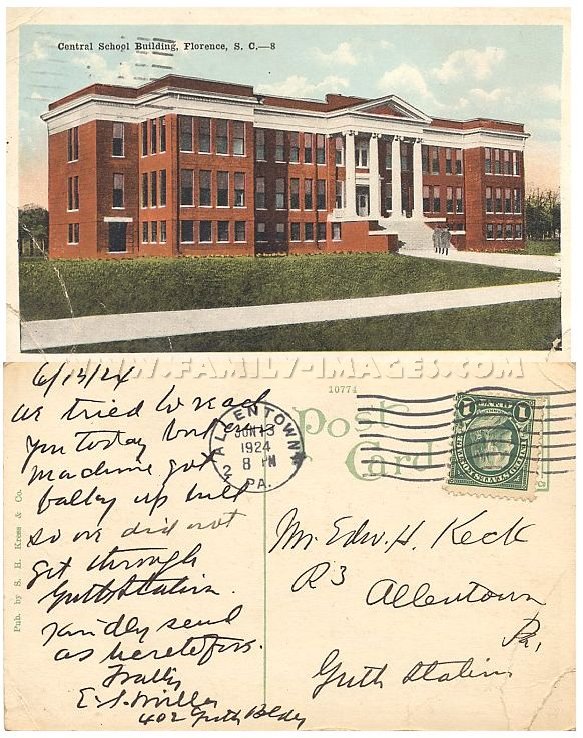 Central School Building, Florence, S. C.—8
WWW.FAMILY-IMAGES.COM
6/13/24
We tried to reach
you today but our
machine got
balky up hill
so we did not
get through
Guth Station.
Kindly send
as heretofore.
Truly
E. S. Miller
402 Guth Bldg
Pub. by S. H. Kress & Co.
10774
Post
Card
ALLENTOWN
JUN 13
8 PM
1924
2
PA.
1 1
Mr. Edw. H. Keck
R3
Allentown
Pa.
Guth Station